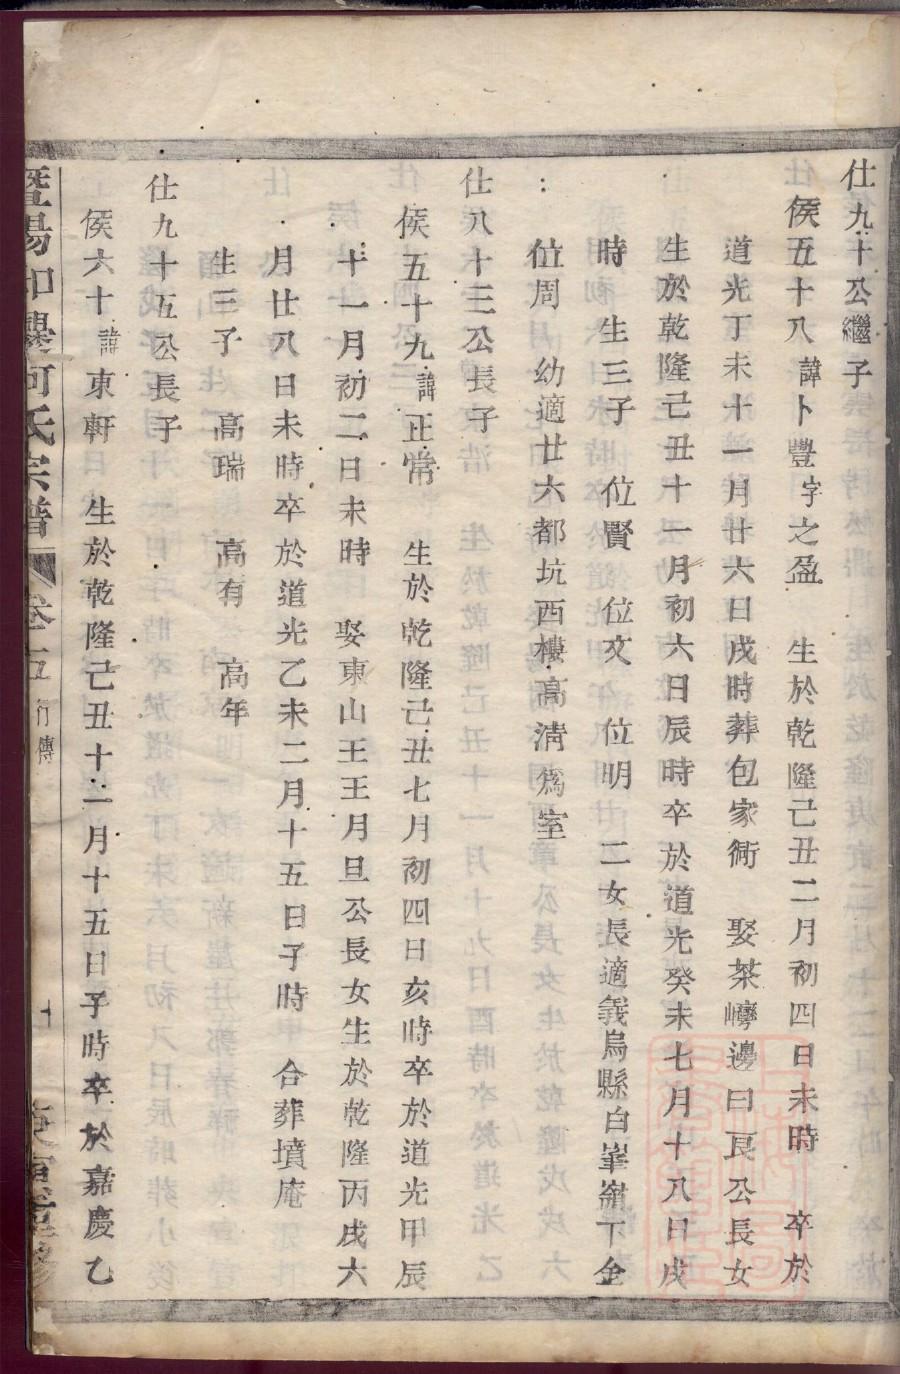 仕九十公繼子
侯五十八諱卜豐字之盈　生於乾隆己丑二月初四日未時　卒於
道光丁未十一月廿六日戌時葬包家衕　娶茶巒邊曰良公長女
生於乾隆己丑十一月初六日辰時卒於道光癸未七月十八日戌
時　生三子　位賢　位文　位明　二女長適義烏縣白峯嶺下金
位周　幼適廿六都坑西樓高清為室
仕八十三公長子
侯五十九諱正常　生於乾隆己丑七月初四日亥時卒於道光甲辰
十一月初二日未時　娶東山王王月旦公長女生於乾隆丙戌六
月廿八日未時卒於道光乙未二月十五日子時　合葬墳庵
生三子　高瑞　高有　高年
仕九十五公長子
侯六十諱東軒　生於乾隆己丑十二月十五日子時卒於嘉慶乙
暨陽　何氏宗譜　卷十五　行傳